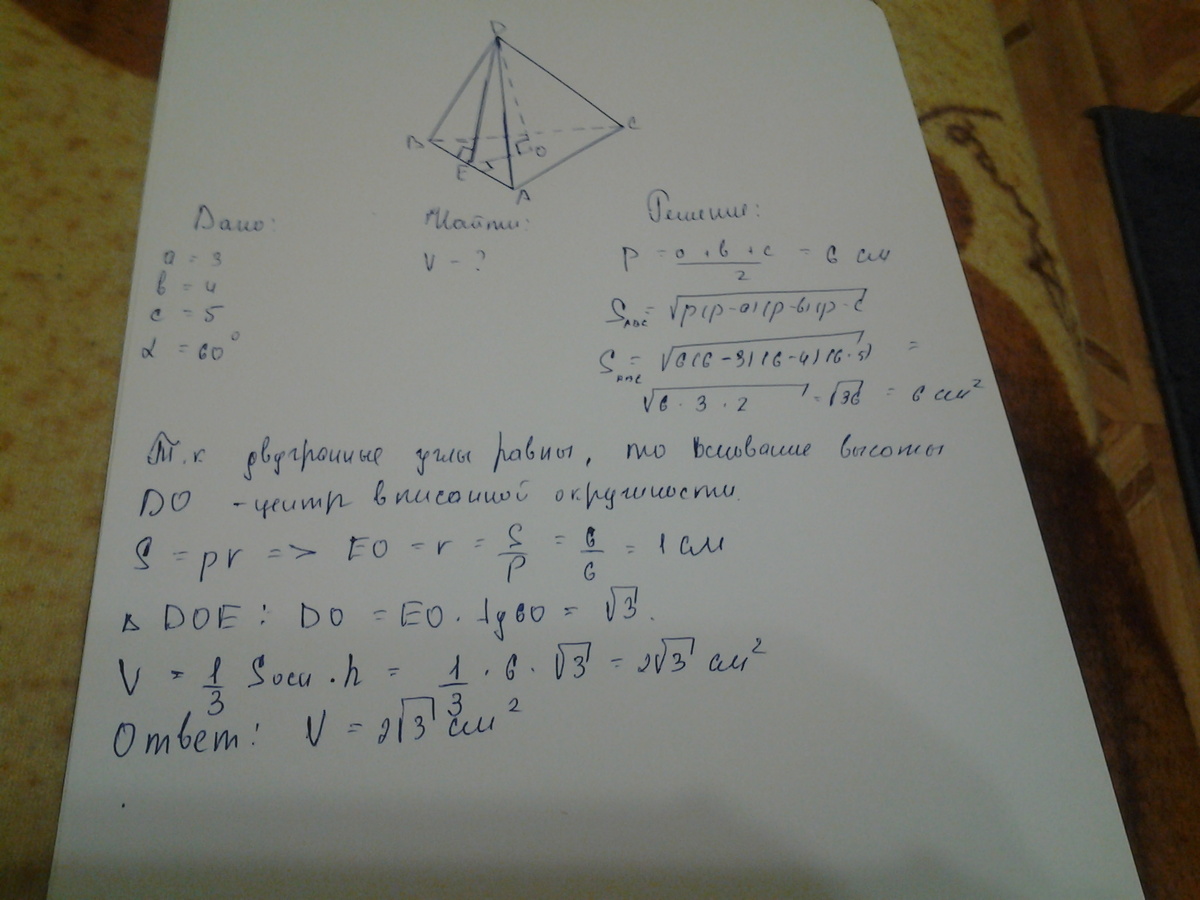 D
B
C
O
E
A
Дано:
a = 3
b = 4
c = 5
α = 60°
Найти:
V - ?
Решение:
P = a + b + c / 2 = 6 см
S ABC = √p(p-a)(p-b)(p-c
S ABC = √6(6-3)(6-4)(6-5) =
√6 · 3 · 2 = √36 = 6 см²
Т.к двугранные углы равны, то основание высоты
DO - центр вписанной окружности.
S = pr => EO = r = S/P = 6/6 = 1 см
△ DOE : DO = EO · tg60 = √3.
V = 1/3 Sосн · h = 1/3 · 6 · √3 = 2√3 см²
Ответ: V = 2√3 см²